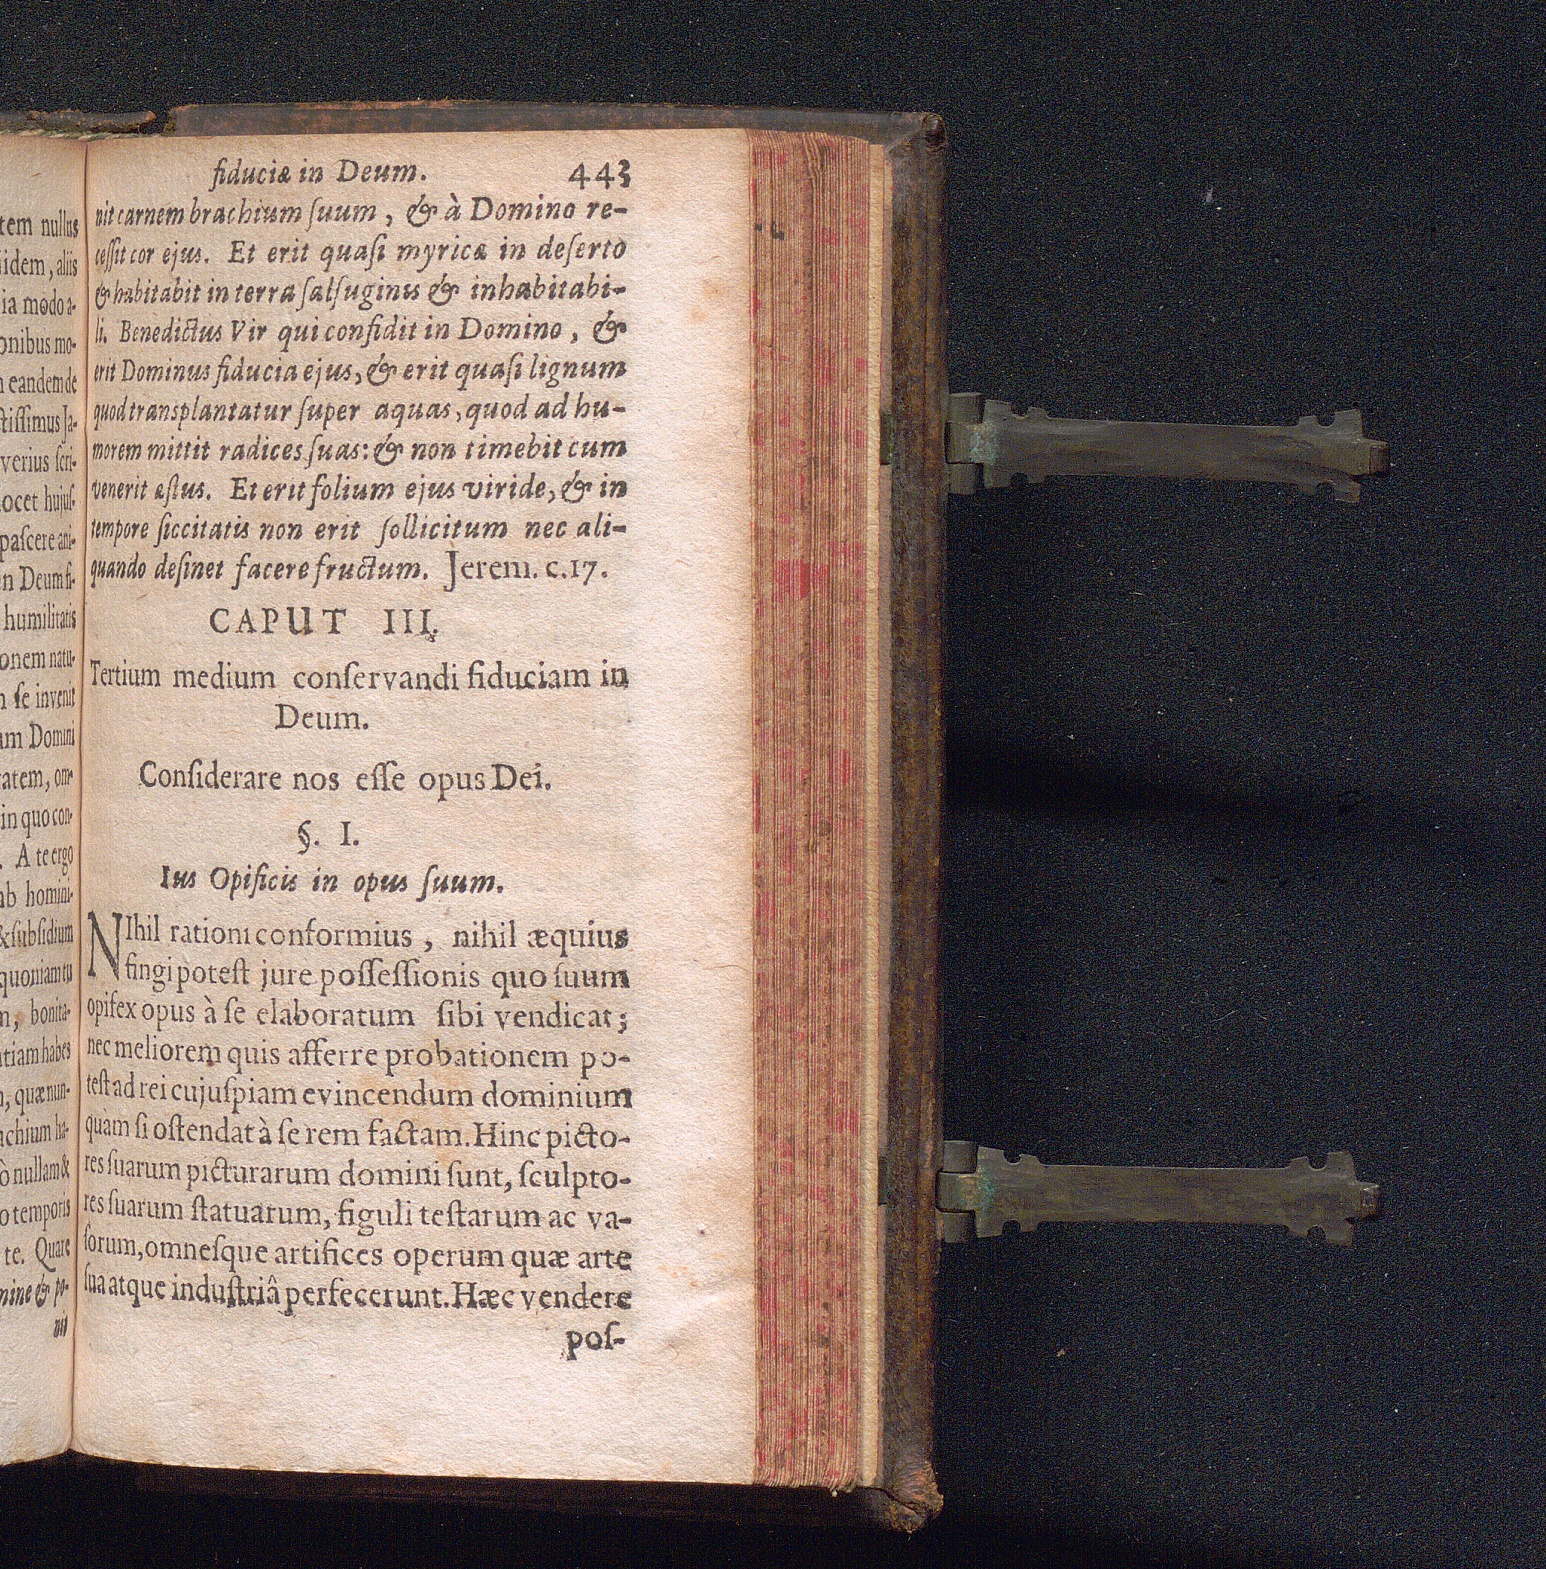 tem nullus
idem, aliis
ia modo a-
onibus mo-
n eandem de
ctiſſimus Ja-
verius ſcri-
ocet hujuſ-
paſcere ani-
n Deum fi-
humilitatis
onem natu-
n ſe invenit
am Domini
ratem, om-
in quo con-
. A te ergo
ab homini-
& ſubſidium
quoniam tu
n, bonita-
tiam habes
, quæ nun-
achium ha-
ò nullam &
o temporis
te. Quare
mine & po-
nit
fiduciæ in Deum. 443
nit carnem brachium ſuum, & à Domino re-
ceſſit cor ejus. Et erit quaſi myricæ in deſerto
& habitabit in terra ſalſuginis & inhabitabi-
li. Benedictus Vir qui confidit in Domino, &
erit Dominus fiducia ejus, & erit quaſi lignum
quod transplantatur ſuper aquas, quod ad hu-
morem mittit radices ſuas: & non timebit cum
venerit æſtus. Et erit folium ejus viride, & in
tempore ſiccitatis non erit ſollicitum nec ali-
quando deſinet facere fructum. Jerem. c.17.
CAPUT III.
Tertium medium conſervandi fiduciam in
Deum.
Conſiderare nos eſſe opus Dei.
§. I.
Ius Opificis in opus ſuum.
NIhil rationi conformius, nihil æquius
fingi poteſt jure poſſeſſionis quo ſuum
opifex opus à ſe elaboratum ſibi vendicat;
nec meliorem quis afferre probationem po-
teſt ad rei cujuſpiam evincendum dominium
quàm ſi oſtendat à ſe rem factam. Hinc picto-
res ſuarum picturarum domini ſunt, ſculpto-
res ſuarum ſtatuarum, figuli teſtarum ac va-
ſorum, omneſque artifices operum quæ arte
ſua atque induſtriâ perfecerunt. Hæc vendere
poſ-